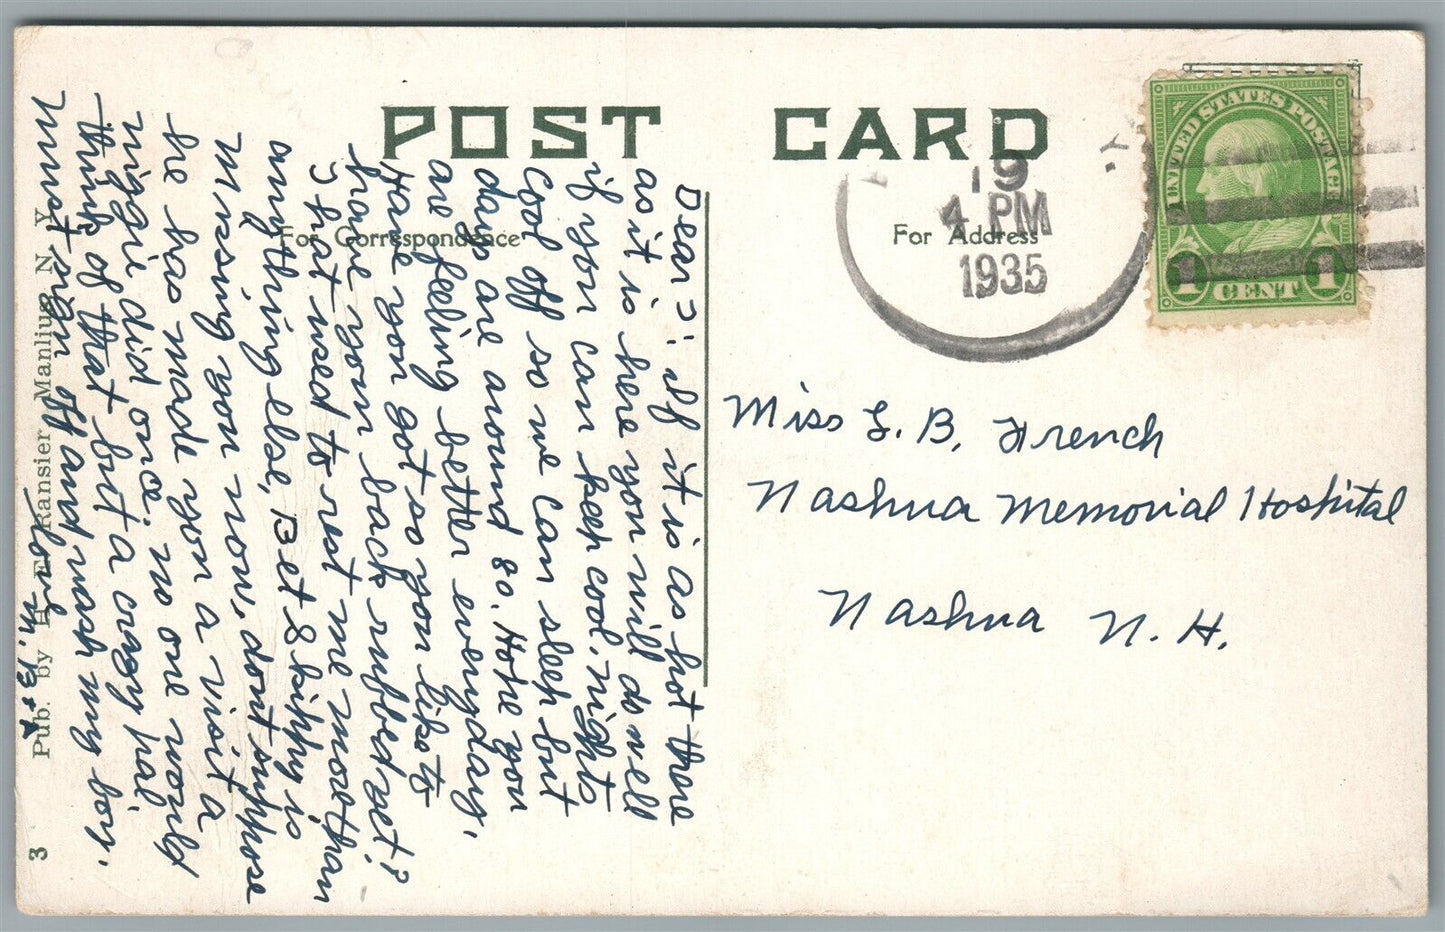 POST CARD
For Correspondence
For Address
19
4 PM
1935
Y.
UNITED STATES POSTAGE
1 CENT 1
Miss L. B. French
Nashua Memorial Hospital
Nashua N. H.
Dear : if it is as hot there
as it is here you will do well
if you can keep cool. nights
cool off so we can sleep but
days are around 80. Hope you
are feeling better everyday.
Have you got so you like to
have your back rubbed yet?
That used to rest me more than
anything else. Bet Skippy is
missing you now, dont suppose
he has made you a visit a
did once. no one would
think of that but a crazy pal
must run off and wash my
Love
M.B.A.
3 Pub. by H. E. Ransier, Manlius N. Y.